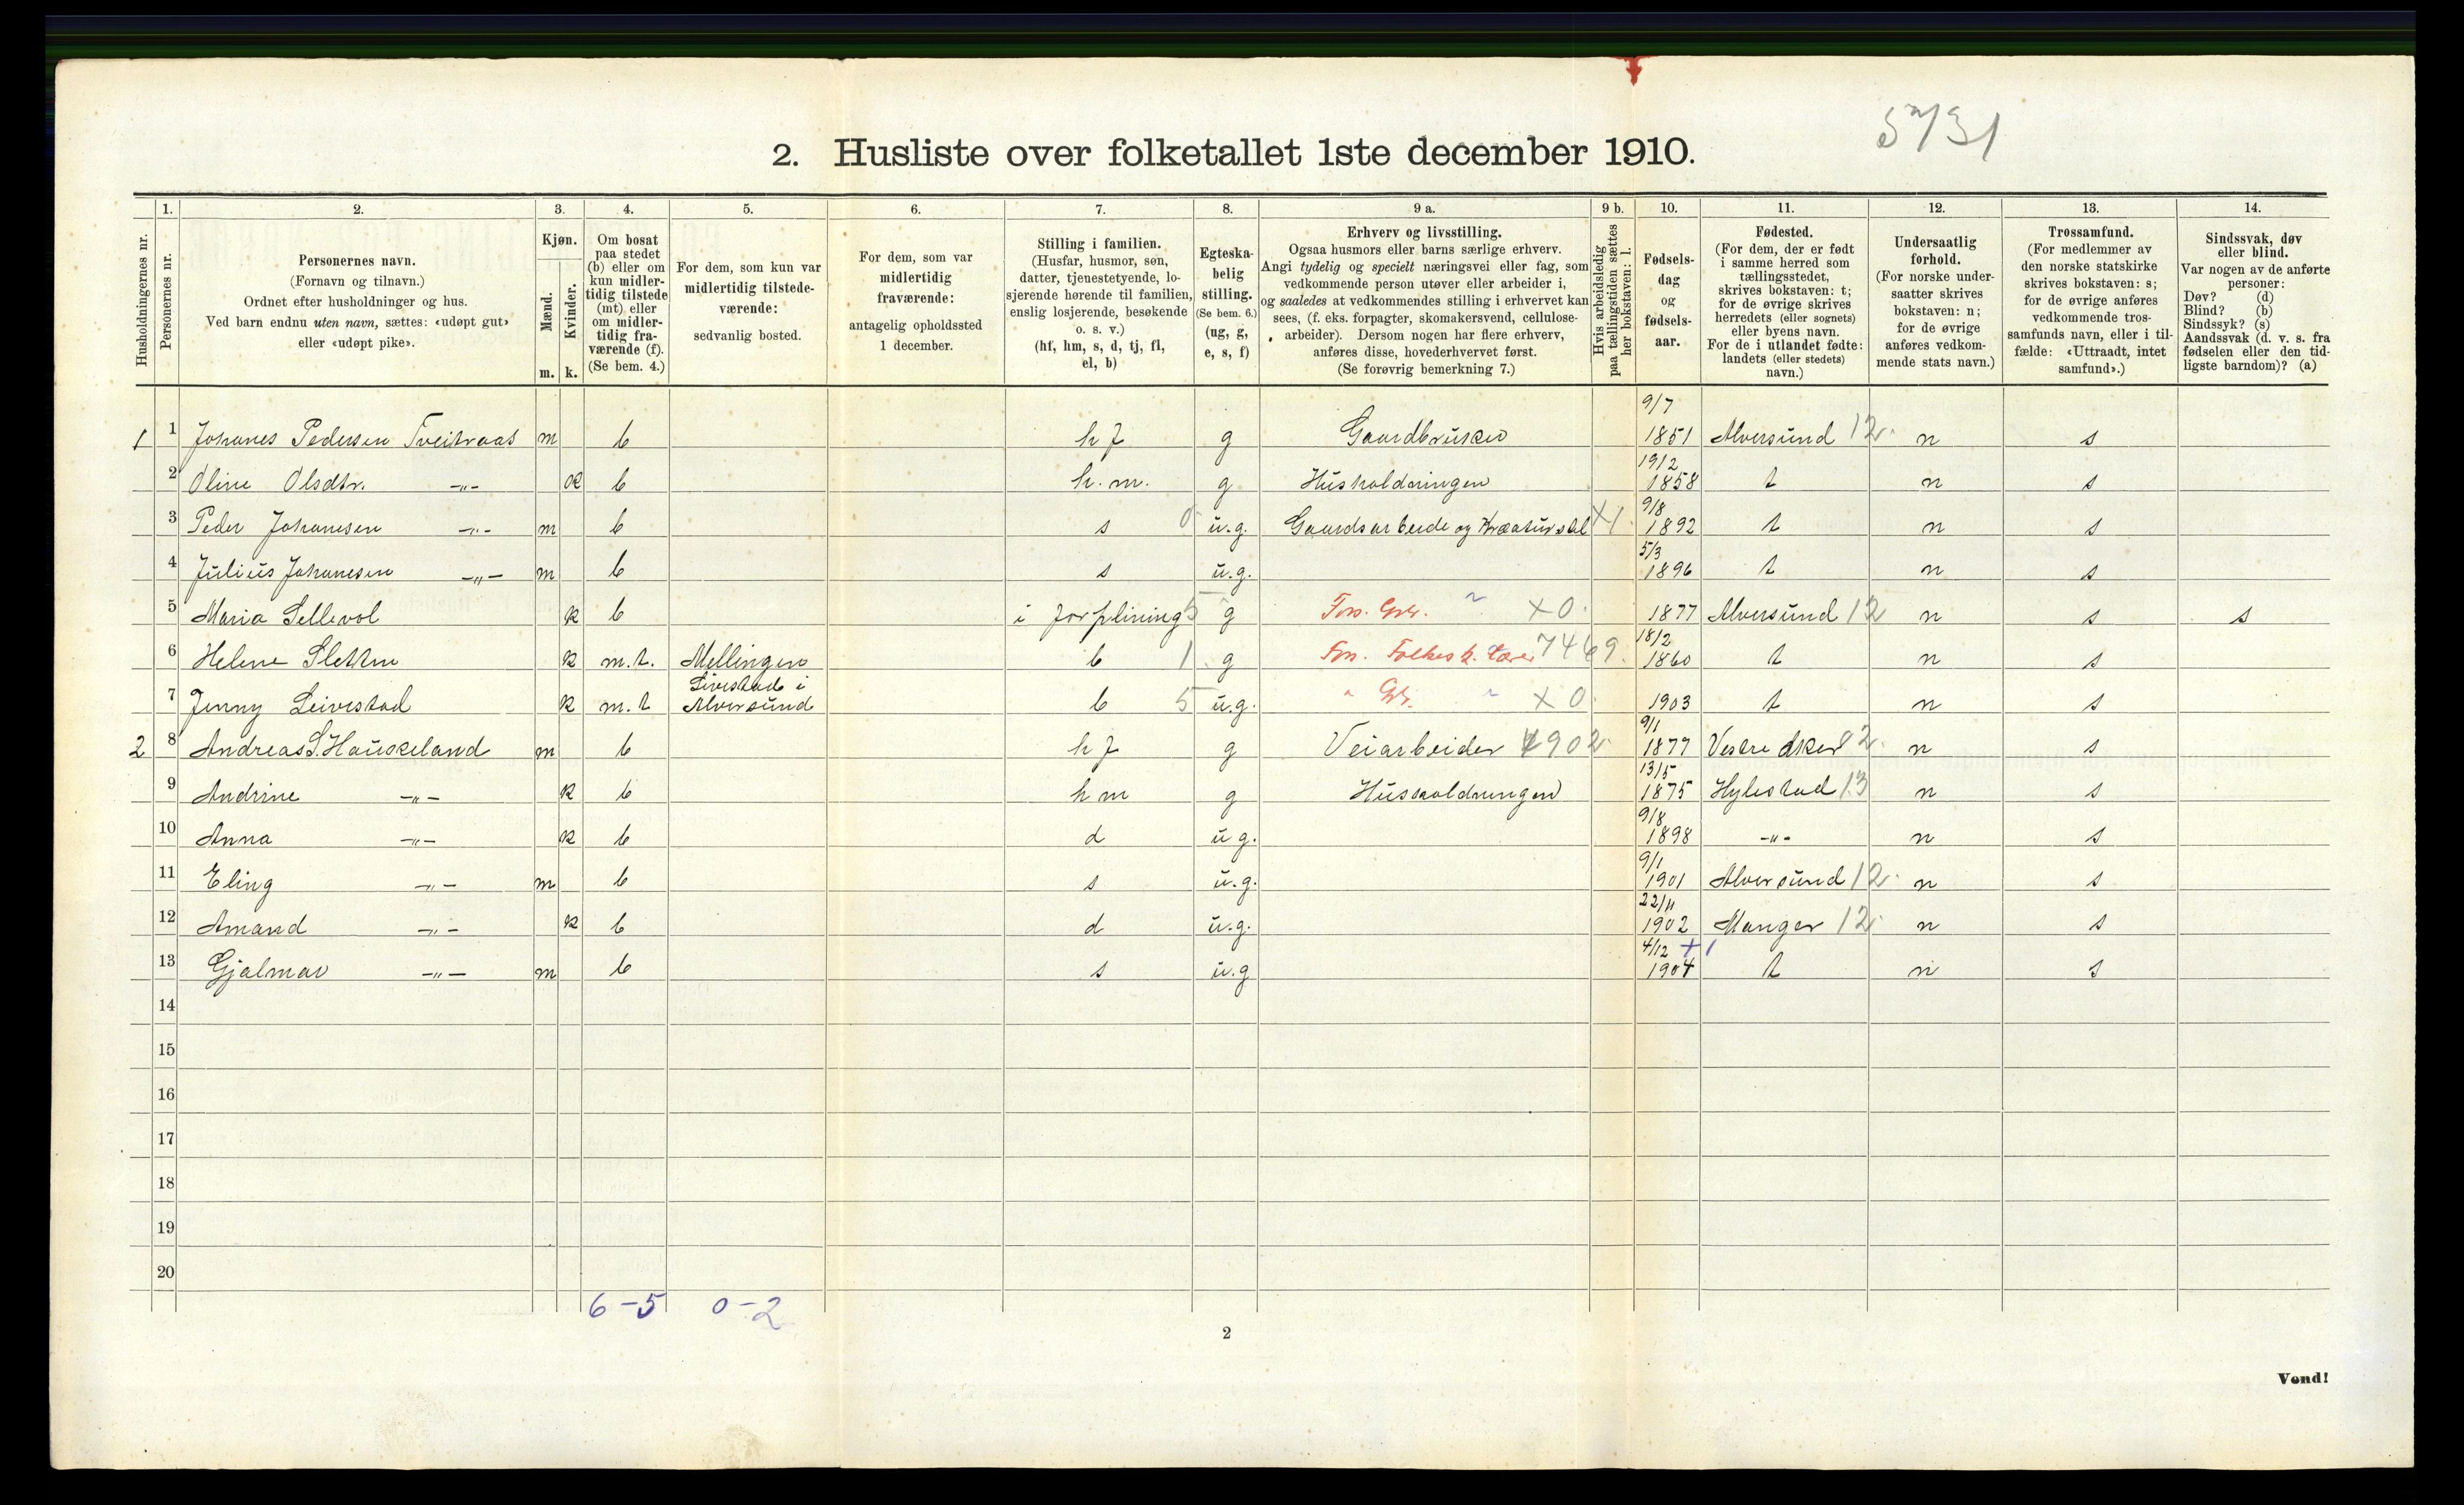 57/31
2. Husliste over folketallet 1ste december 1910.
Husholdningernes nr.
1.
Personernes nr.
2.
Personernes navn.
(Fornavn og tilnavn.)
Ordnet efter husholdninger og hus.
Ved barn endnu uten navn, sættes: «udøpt gut»
eller «udøpt pike».
3.
Kjøn.
Mænd.
Kvinder.
m. k.
4.
Om bosat
paa stedet
(b) eller om
kun midler-
tidig tilstede
(mt) eller
om midler-
tidig fra-
værende (f).
(Se bem. 4.)
5.
For dem, som kun var
midlertidig tilstede-
værende:
sedvanlig bosted.
6.
For dem, som var
midlertidig
fraværende:
antagelig opholdssted
1 december.
7.
Stilling i familien.
(Husfar, husmor, søn,
datter, tjenestetyende, lo-
sjerende hørende til familien,
enslig losjerende, besøkende
o. s. v.)
(hf, hm, s, d, tj, fl,
el, b)
8.
Egteska-
belig
stilling.
(Se bem. 6.)
(ug, g,
e, s, f)
9 a.
Erhverv og livsstilling.
Ogsaa husmors eller barns særlige erhverv.
Angi tydelig og specielt næringsvei eller fag, som
vedkommende person utøver eller arbeider i,
og saaledes at vedkommendes stilling i erhvervet kan
sees, (f. eks. forpagter, skomakersvend, cellulose-
arbeider). Dersom nogen har flere erhverv,
anføres disse, hovederhvervet først.
(Se forøvrig bemerkning 7.)
9 b.
Hvis arbeidsledig
paa tællingstiden sættes
her bokstaven: l.
10.
Fødsels-
dag
og
fødsels-
aar.
11.
Fødested.
(For dem, der er født
i samme herred som
tællingsstedet,
skrives bokstaven: t;
for de øvrige skrives
herredets (eller sognets)
eller byens navn.
For de i utlandet fødte:
landets (eller stedets)
navn.)
12.
Undersaatlig
forhold.
(For norske under-
saatter skrives
bokstaven: n;
for de øvrige
anføres vedkom-
mende stats navn.)
13.
Trossamfund.
(For medlemmer av
den norske statskirke
skrives bokstaven: s;
for de øvrige anføres
vedkommende tros-
samfunds navn, eller i til-
fælde: «Uttraadt, intet
samfund».)
14.
Sindssvak, døv
eller blind.
Var nogen av de anførte
personer:
Døv? (d)
Blind? (b)
Sindssyk? (s)
Aandssvak (d. v. s. fra
fødselen eller den tid-
ligste barndom)? (a)
1 1 Johanes Pedersen Tveitraas m b hf g Gaardbruker 9/7 1851 Alversund 12 n s
2 Oline Olsdtr. -"- k b h.m. g Husholdningen 19/2 1858 t n s
3 Peder Johanesen -"- m b s 0 u.g. Gaardsarbeide og Kreaturstel X1 9/8 1892 t n s
4 Julius Johanesen -"- m b s u.g. 5/3 1896 t n s
5 Maria Sellevol k b i forpleining 5 g X0 1877 Alversund 12 n s s
6 Helene Sletten k m.t. Mellingen b 1 g 7469 18/2 1860 t n s
7 Jenny Leivestad k m.t Livestad i Alversund b 5 u.g. X0 1903 t n s
2 8 Andreas S. Hauskeland m b hf g Veiarbeider 4902 9/1 1877 Vestre Aker 2 n s
9 Andrine -"- k b hm g Husholdningen 13/5 1875 Hylestad 13 n s
10 Anna -"- k b d u g. 9/8 1898 -"- n s
11 Eling -"- m b s u.g. 9/1 1901 Alversund 12 n s
12 Amand -"- k b d u.g. 22/11 1902 Manger 12 n s
13 Gjalmar -"- m b s u.g 4/12 +1 1904 t n s
14
15
16
17
18
19
20
6-5 0-2
2
Vend!